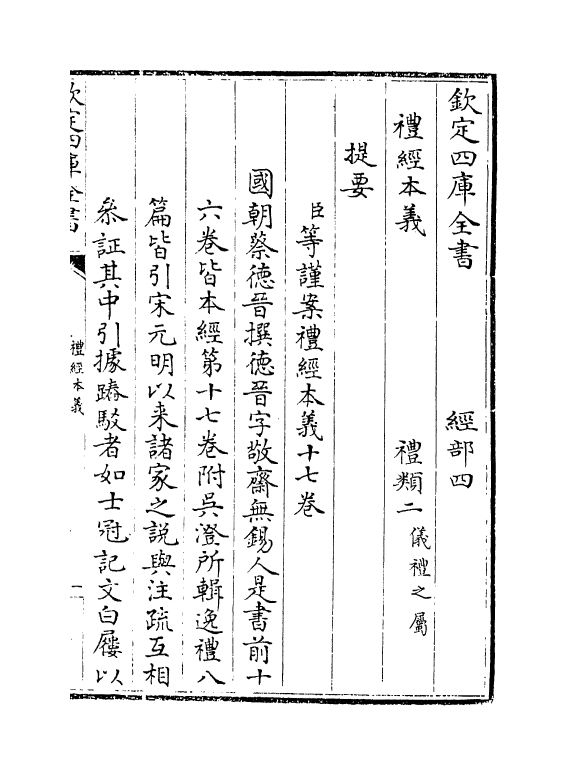 欽定四庫全書　經部四
禮經本義　禮類二儀禮之屬
提要
臣等謹案禮經本義十七卷
國朝蔡徳晋撰徳晋字敬齋無錫人是書前十
六卷皆本經第十七卷附吳澄所輯逸禮八
篇皆引宋元明以来諸家之說與注疏互相
叅証其中引據踳駁者如士冠記文白屨以
欽定四庫全書
禮經本義
一